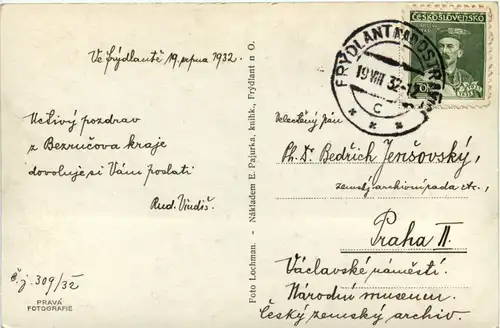 Ve Frýdlantě 19. srpna 1932.
Uctivý pozdrav
z Bezručova kraje
dovoluje si Vám poslati
Rud. Vindiš.
č. j. 309/32
PRAVÁ
FOTOGRAFIE
Foto Lochman. - Nákladem E. Pajurka, knihk., Frýdlant n O.
ČESKOSLOVENSKO
FRÝDLANT NAD OSTRAVICÍ
19 VIII 32
C
Velectěný pán
Ph. Dr. Bedřich Jenšovský,
zemský archivní rada etc.,
Praha II.
Václavské náměstí.
Národní museum.
Český zemský archiv.